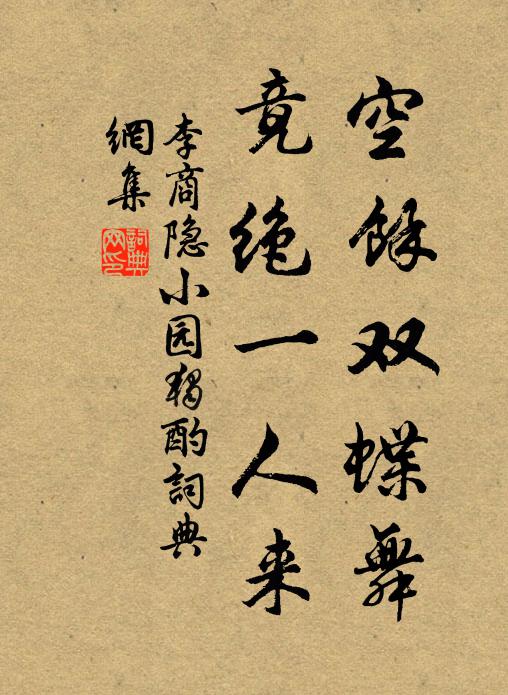 空馀双蝶舞
竟绝一人来
李商隐小园独酌詞典
網集
詞典
网印